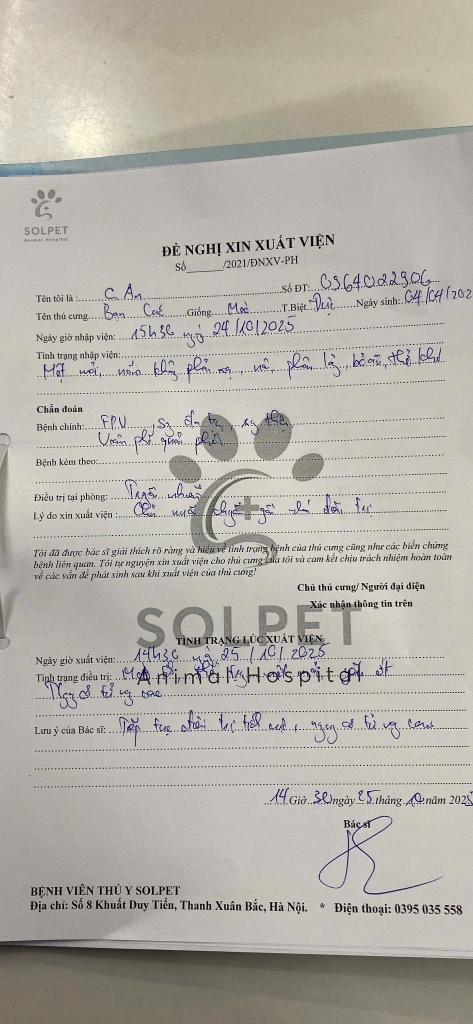 SOLPET
Animal Hospital
ĐỀ NGHỊ XIN XUẤT VIỆN
Số______/2021/ĐNXV-PH
Tên tôi là : C. An Số ĐT: 0564022906
Tên thú cưng Giống Mèo T.Biệt Đực Ngày sinh: 04/04/202
Ngày giờ nhập viện: 15h30 ngày 24/10/2025
Tình trạng nhập viện:
Mệt mỏi, nằm không phản xạ, phân lỏng, bỏ ăn, thở khó
Chẩn đoán
Bệnh chính: FPV
Viêm phế quản phổi
Bệnh kèm theo:
Điều trị tại phòng: Truyền nhiễm
Lý do xin xuất viện : Chủ nuôi
Tôi đã được bác sĩ giải thích rõ ràng và hiểu về tình trạng bệnh của thú cưng cũng như các biến chứng
bệnh liên quan. Tôi tự nguyện xin xuất viện cho thú cưng của tôi và cam kết chịu trách nhiệm hoàn toàn
về các vấn đề phát sinh sau khi xuất viện của thú cưng!
Chủ thú cưng/ Người đại diện
Xác nhận thông tin trên
SOLPET
TÌNH TRẠNG LÚC XUẤT VIỆN
Ngày giờ xuất viện: 14h30 ngày 25/10/2025
Tình trạng điều trị:
Animal Hospital
Nguy cơ tử vong cao
Lưu ý của Bác sĩ: Tiếp tục điều trị tích cực, nguy cơ tử vong cao
14 Giờ 30 ngày 25 tháng 10 năm 2025
Bác sĩ
BỆNH VIỆN THÚ Y SOLPET
Địa chỉ: Số 8 Khuất Duy Tiến, Thanh Xuân Bắc, Hà Nội. * Điện thoại: 0395 035 558